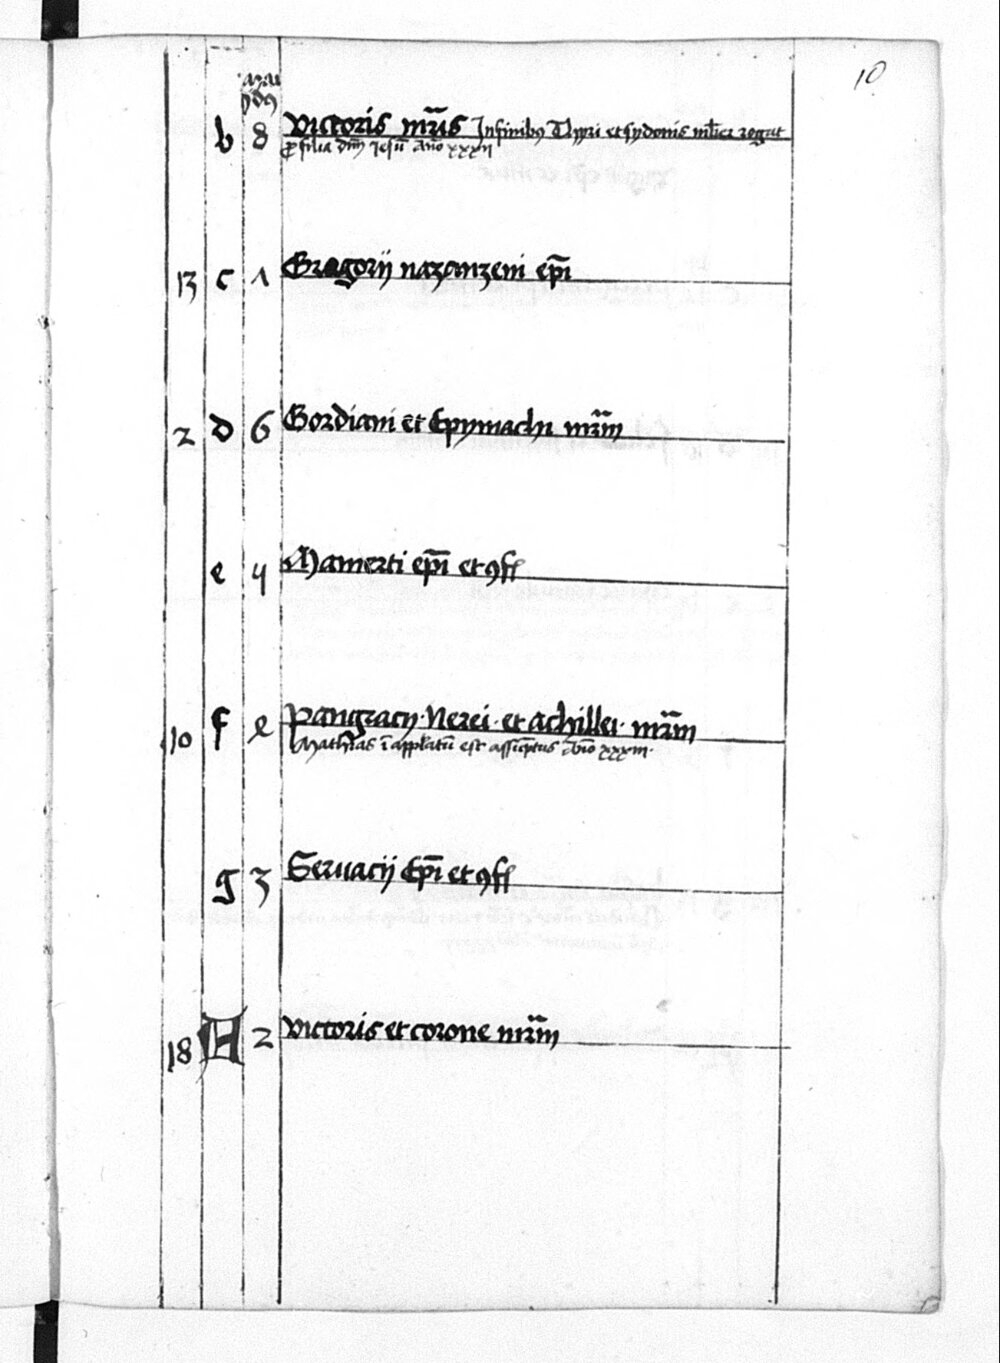 10
b 8 victoris mr̃is In finibus Tyri et sydonis mulier rogat
ꝓ filia dn̄m Jesū Año xxxij
13 c 1 Gregorij nazanzeni ep̄i
2 d 6 Gordiani et Epymachi mr̃m
e 4 Mamerti ep̄i et ꝯff
10 f e pangracij · Nerei · et achillei · mr̃m
Mathias ī applātū est assūptus Año xxxiii ·
g 3 Seruacij Ep̄i et ꝯff
18 A 2 victoris et corone mr̃m